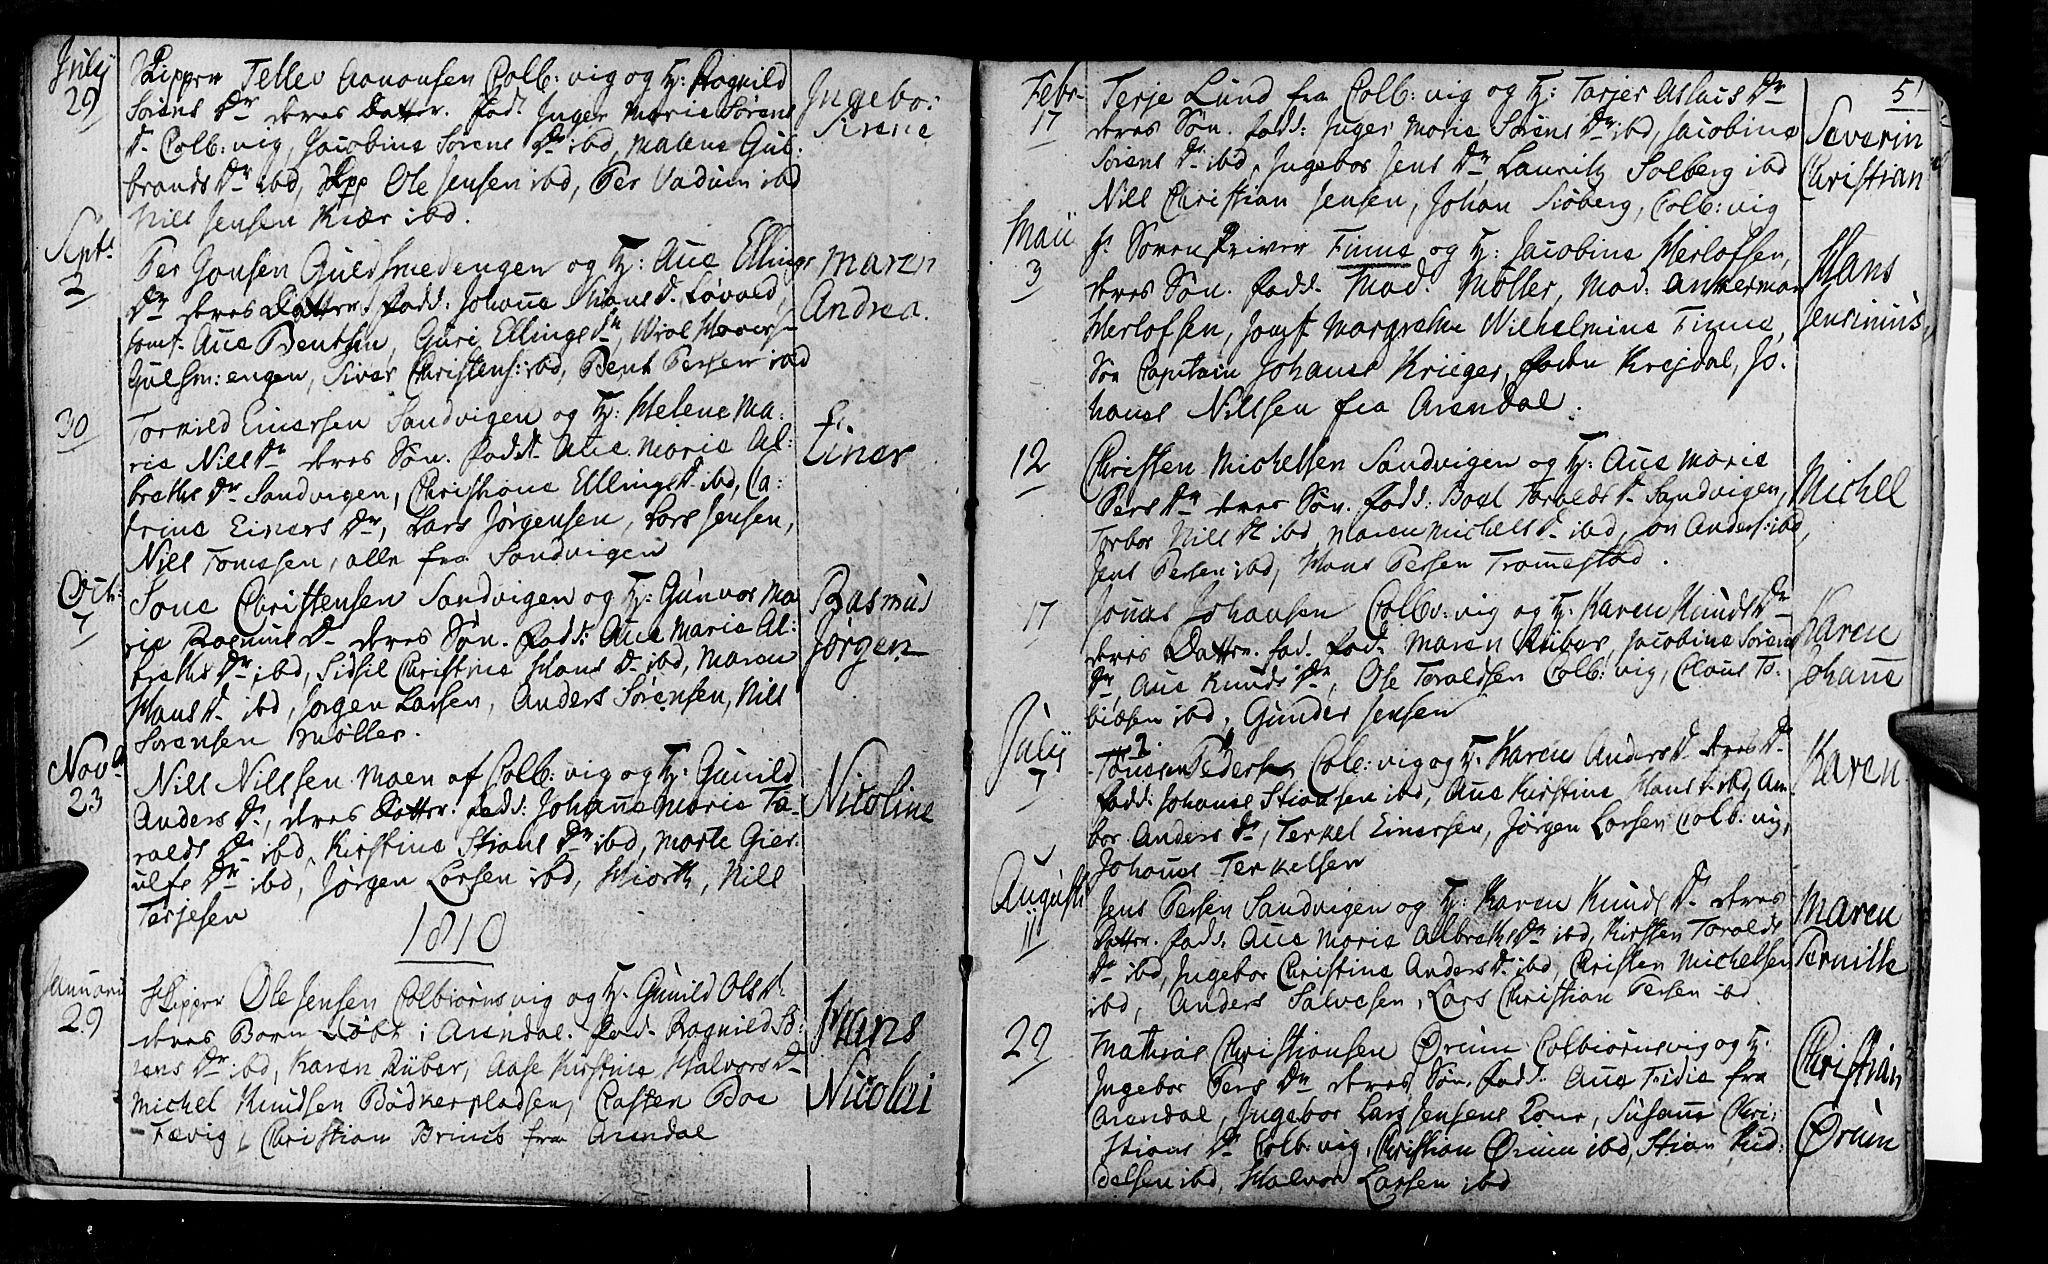 Julij
29
Skipper Tellev Aanonsen Colb: vig og H: Ragnild
Sørens Dr deres Datter. Fad. Inger Marie Sørens
D. Colb: vig, Jacobine Sørens Dr ibd, Malene Gul:
brands Dr ibd, Skpp Ole Jensen ibd, Per Vadum ibd
Nill Jensen Kiær ibd.
Ingebor
Sirene
Septr
2
Per Jonsen Guldsmedengen og H: Ane Ellings
Dr deres Datter. Fadd: Johanne Hans D. Løvold,
Jomf. Ane Bentsen, Guri Ellings Dr,
Gulsm: engen, Siver Christens: ibd, Bent Persen ibd
Maren
Andrea.
30
Torkild Einersen Sandvigen og H: Helene Ma:
rie Nills Dr deres Søn. Fadd. Ane Marie Al:
breths Dr Sandvigen, Christiane Ellings D. ibd, Ca:
trine Einers Dr, Lars Jørgensen, Lars Jensen,
Nill Tomesen, alle fra Sandvigen
Einer
Octr:
7
Tone Christensen Sandvigen og H: Gunvor Ma
rie Rasmus D. deres Søn. Fadd: Ane Marie Al:
breths Dr ibd, Sidsil Christine Hans D. ibd, Maren
Hans D. ibd, Jørgen Larsen, Anders Sørensen, Nill
Sørensen Møller.
Rasmus
Jørgen
Novr
23
Nill Nillsen Moen af Colb: vig og H: Gunild
Anders D., deres Datter. Fadd: Johanne Marie Ta:
ralds D. ibd, Kirstine Stians Dr ibd, Marte Gier:
ulfs Dr ibd, Jørgen Larsen ibd, Hiorth, Nill
Terjesen
Nicoline
1810
Januarii
29
Skipper Ole Jensen Colbiørnsvig og H. Gunild Ols D.
deres Barn døbt i Arendal. Fad. Ragnild Sø:
rens Dr ibd, Karen Ruber, Aase Kirstine Halvors D.
Michel Knudsen Bødkerpladsen, Casten Boe
Fævig, Christian Brinch fra Arendal
Hans
Nicolai
5
Febr.
17
Terje Lund fra Colb: vig og H: Tarjer Aslacs Dr
deres Søn. Fadd: Inger Marie Sørens Dr ibd, Jacobine
Sørens D. ibd, Ingebor Jens Dr, Lauritz Solberg ibd
Nill Christian Jensen, Johan Siøberg, Colb: vig
Severin
Christian
Maii
3
Hr Sorenskriver Finne og H: Jacobine Herlofsen,
deres Søn. Fadd. Mad. Møller, Mad. Ankerman
Herlofsen, Jomf Margrethe Wilhelmine Finne,
Søe Capitain Johannes Krieger, Krejdal, Jo:
hannes Nillsen fra Arendal.
Hans
Jensinius,
12
Christen Michelsen Sandvigen og H: Ane Marie
Pers Dr deres Søn. Fadd: Boel Toralds D. Sandvigen,
Torbor Nills D. ibd, Maren Michels D. ibd, Jon Anders: ibd,
Jens Persen ibd, Hans Persen Tromestad.
Michel
17
Jonas Johansen Colb: vig og H: Karen Knuds Dr
deres Datter. Fad. Maren Ruber, Jacobine Sørens
Dr, Ane Knuds Dr, Ole Toraldsen Colb: vig, Claus To:
biæsen ibd, Gunder Jensen
Karen
Johanne
Julij
7
Tønesen Pedersen Colb: vig og H. Karen Anders D. deres D.
Fadd: Johannes Stiansen ibd, Ane Kirstine Hans D. ibd, Am
bor Anders Dr, Terkel Einersen, Jørgen Larsen Colb: vig,
Johannes Terkelsen
Karen
Augusti
11
Jens Persen Sandvigen og H: Karen Knuds D. deres
Datter. Fadd. Ane Marie Albreths Dr ibd, Kirsten Toralds
Dr ibd, Ingebor Christine Anders D. ibd, Christen Michelsen
ibd, Anders Salvesen, Lars Christian Persen ibd.
Maren
Pernille
29
Mathias Christiansen Ørum Colbiørnsvig og H.
Ingebor Pers Dr deres Søn. Fadd. Ane Fidie fra
Arendal, Ingebor Lars Jensens Kone, Susanne Chri:
stians Dr Colb: vig, Christian Ørum ibd, Stian Knud:
delsen ibd, Halvor Larsen ibd
Christian
Ørum